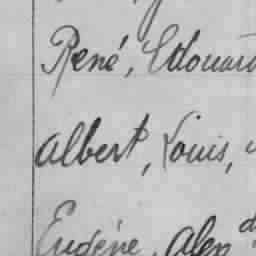 René, Edouard
Albert, Louis,
Eugène, Alexd